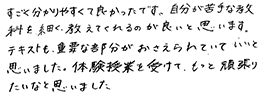 すごく分かりやすくて良かったです。自分が苦手な教
科を細く教えてくれるのが良いと思います。
テキストも、重要な部分がおさえられていていいと
思いました。体験授業を受けて、もっと頑張り
たいなと思いました